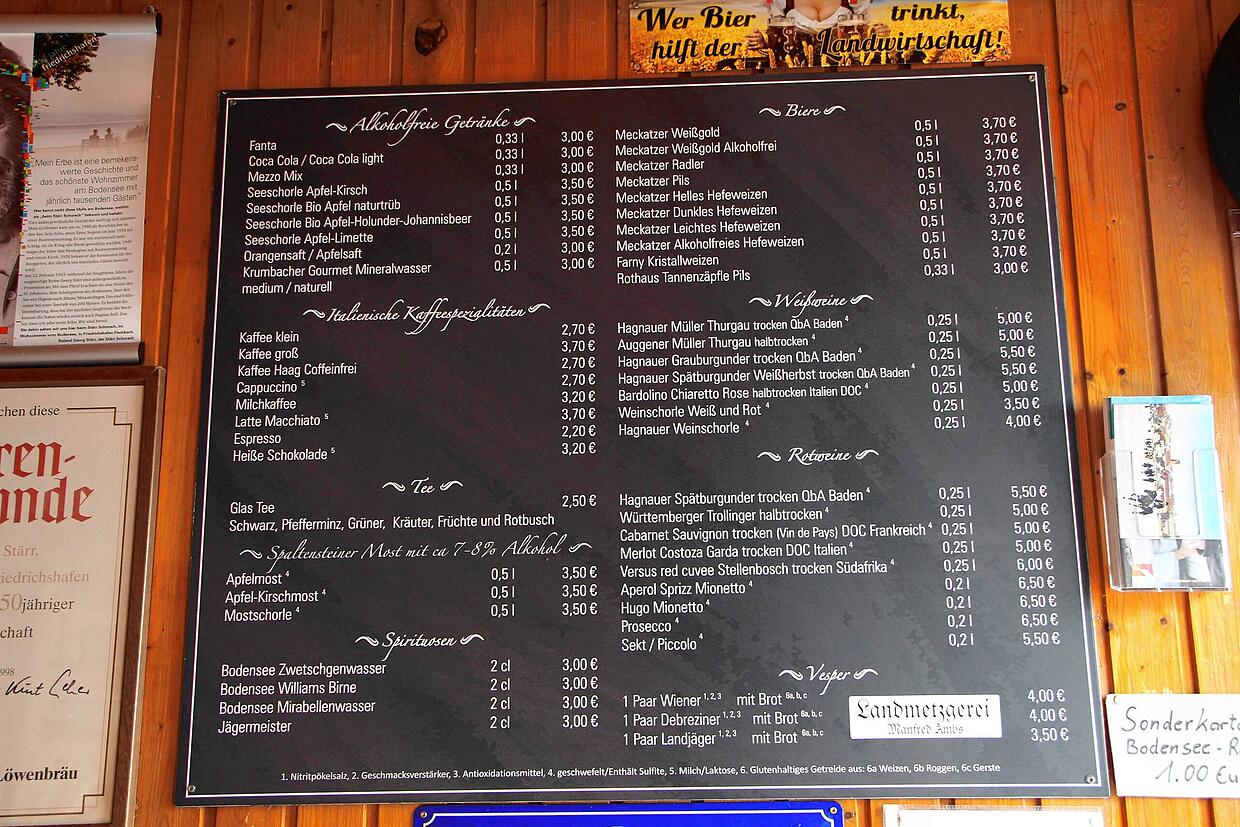 Wer Bier trinkt,
hilft der Landwirtschaft!
friedrichshafen
„Mein Erbe ist eine bemerkens-
werte Geschichte und
das schönste Wohnzimmer
am Bodensee mit
jährlich tausenden Gästen“
chen diese
ren-
nde
Stärr,
riedrichshafen
50jähriger
schaft
1998
Löwenbräu
Alkoholfreie Getränke
Fanta 0,33 l 3,00 €
Coca Cola / Coca Cola light 0,33 l 3,00 €
Mezzo Mix 0,33 l 3,00 €
Seeschorle Apfel-Kirsch 0,5 l 3,50 €
Seeschorle Bio Apfel naturtrüb 0,5 l 3,50 €
Seeschorle Bio Apfel-Holunder-Johannisbeer 0,5 l 3,50 €
Seeschorle Apfel-Limette 0,5 l 3,50 €
Orangensaft / Apfelsaft 0,2 l 3,00 €
Krumbacher Gourmet Mineralwasser 0,5 l 3,00 €
medium / naturell
Italienische Kaffeespezialitäten
Kaffee klein 2,70 €
Kaffee groß 3,70 €
Kaffee Haag Coffeinfrei 2,70 €
Cappuccino 5 2,70 €
Milchkaffee 3,20 €
Latte Macchiato 5 3,70 €
Espresso 2,20 €
Heiße Schokolade 5 3,20 €
Tee
Glas Tee 2,50 €
Schwarz, Pfefferminz, Grüner, Kräuter, Früchte und Rotbusch
Spaltensteiner Most mit ca 7-8% Alkohol
Apfelmost 4 0,5 l 3,50 €
Apfel-Kirschmost 4 0,5 l 3,50 €
Mostschorle 4 0,5 l 3,50 €
Spirituosen
Bodensee Zwetschgenwasser 2 cl 3,00 €
Bodensee Williams Birne 2 cl 3,00 €
Bodensee Mirabellenwasser 2 cl 3,00 €
Jägermeister 2 cl 3,00 €
Biere
Meckatzer Weißgold 0,5 l 3,70 €
Meckatzer Weißgold Alkoholfrei 0,5 l 3,70 €
Meckatzer Radler 0,5 l 3,70 €
Meckatzer Pils 0,5 l 3,70 €
Meckatzer Helles Hefeweizen 0,5 l 3,70 €
Meckatzer Dunkles Hefeweizen 0,5 l 3,70 €
Meckatzer Leichtes Hefeweizen 0,5 l 3,70 €
Meckatzer Alkoholfreies Hefeweizen 0,5 l 3,70 €
Farny Kristallweizen 0,5 l 3,70 €
Rothaus Tannenzäpfle Pils 0,33 l 3,00 €
Weißweine
Hagnauer Müller Thurgau trocken QbA Baden 4 0,25 l 5,00 €
Auggener Müller Thurgau halbtrocken 4 0,25 l 5,00 €
Hagnauer Grauburgunder trocken QbA Baden 4 0,25 l 5,50 €
Hagnauer Spätburgunder Weißherbst trocken QbA Baden 4 0,25 l 5,50 €
Bardolino Chiaretto Rose halbtrocken Italien DOC 4 0,25 l 5,00 €
Weinschorle Weiß und Rot 4 0,25 l 3,50 €
Hagnauer Weinschorle 4 0,25 l 4,00 €
Rotweine
Hagnauer Spätburgunder trocken QbA Baden 4 0,25 l 5,50 €
Württemberger Trollinger halbtrocken 4 0,25 l 5,00 €
Cabarnet Sauvignon trocken (Vin de Pays) DOC Frankreich 4 0,25 l 5,00 €
Merlot Costoza Garda trocken DOC Italien 4 0,25 l 5,00 €
Versus red cuvee Stellenbosch trocken Südafrika 4 0,25 l 6,00 €
Aperol Sprizz Mionetto 4 0,2 l 6,50 €
Hugo Mionetto 4 0,2 l 6,50 €
Prosecco 4 0,2 l 6,50 €
Sekt / Piccolo 4 0,2 l 5,50 €
Vesper
1 Paar Wiener 1, 2, 3 mit Brot 6a, b, c 4,00 €
1 Paar Debreziner 1, 2, 3 mit Brot 6a, b, c 4,00 €
1 Paar Landjäger 1, 2, 3 mit Brot 6a, b, c 3,50 €
Landmetzgerei
Manfred Ambs
1. Nitritpökelsalz, 2. Geschmacksverstärker, 3. Antioxidationsmittel, 4. geschwefelt/Enthält Sulfite, 5. Milch/Laktose, 6. Glutenhaltiges Getreide aus: 6a Weizen, 6b Roggen, 6c Gerste
Sonderkarte
Bodensee - R
1.00 Eu